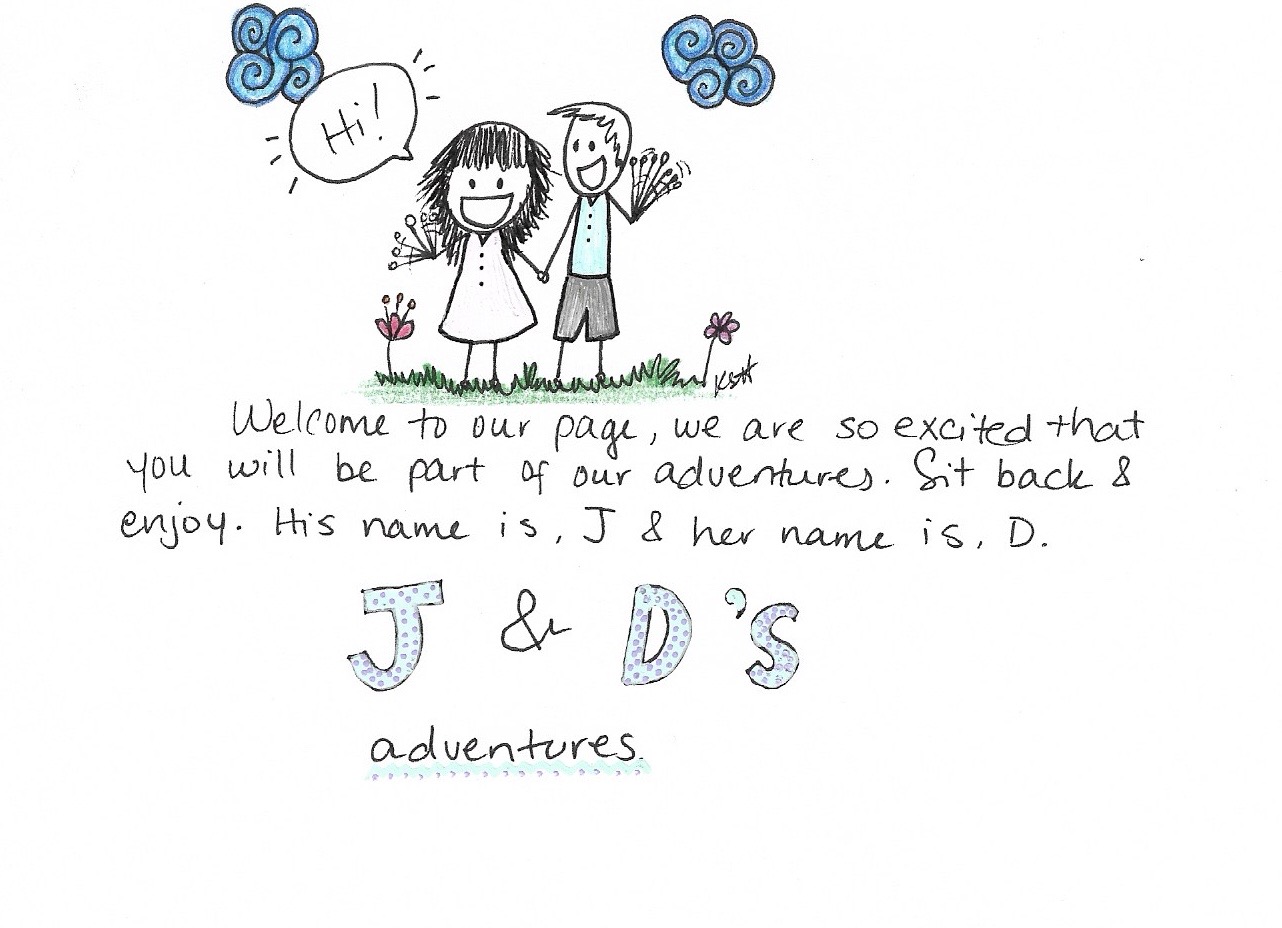 Hi!
Welcome to our page, we are so excited that
you will be part of our adventures. Sit back &
enjoy. His name is, J & her name is, D.
J & D's
adventures.